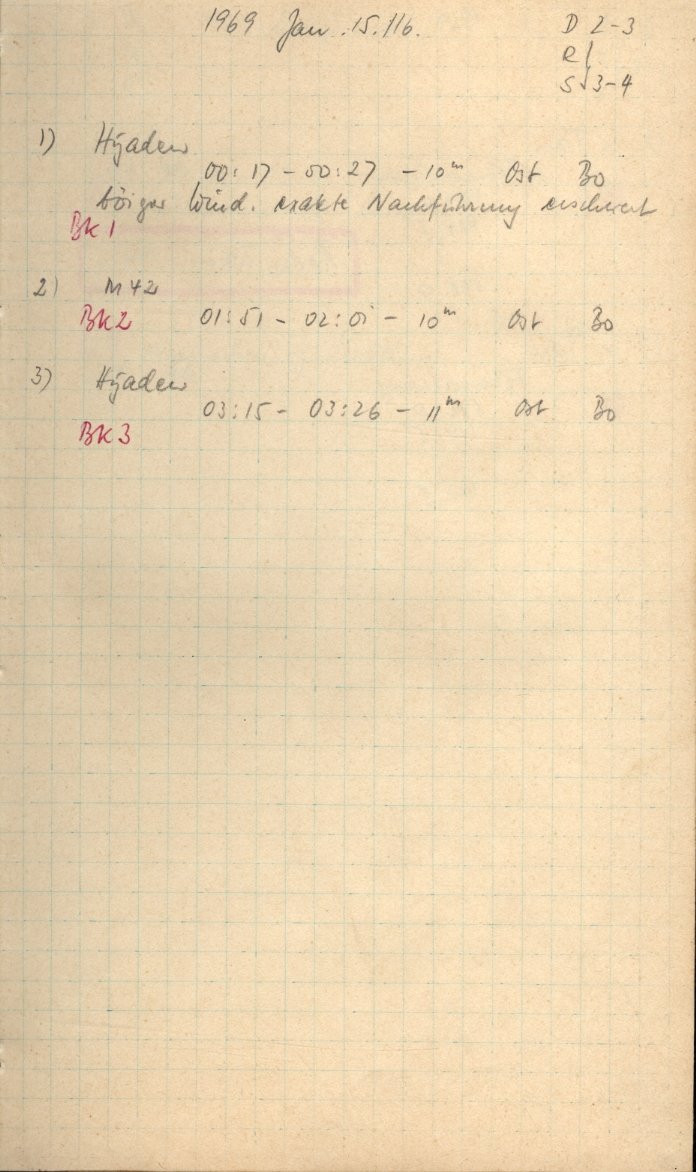 1969 Jan. 15./16.
D 2-3
R 1
S 3-4
1) Hyaden
00:17 - 00:27 - 10ᵐ Ost Bo
böiger Wind. exakte Nachführung erschwert
BK1
2) M42
BK2 01:51 - 02:01 - 10ᵐ Ost Bo
3) Hyaden
03:15 - 03:26 - 11ᵐ Ost Bo
BK3